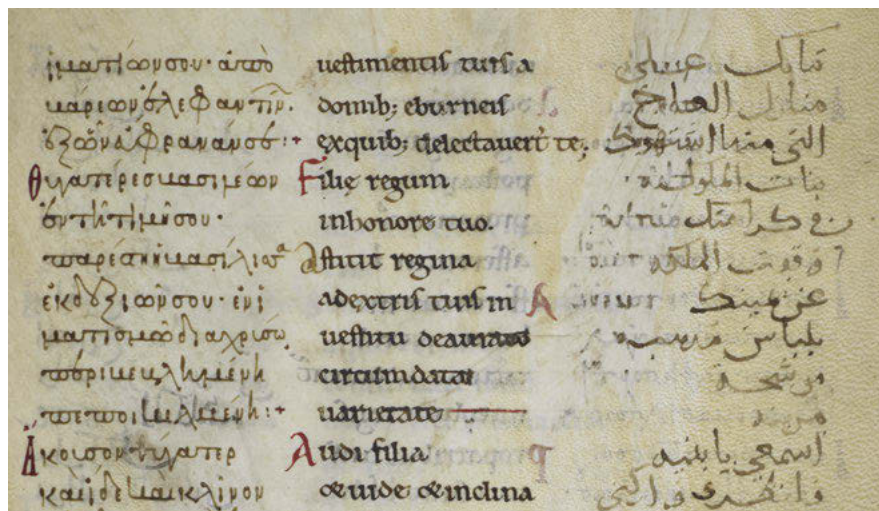 ἱματίων σου· ἀπὸ
βάρεων ἐλεφαντίν
ἐξ ὧν εὔφρανάν σε:+
Θυγατέρες βασιλέων
ἐν τῇ τιμῇ σου·
παρέστη ἡ βασίλισσα
ἐκ δεξιῶν σου· ἐν ἱ
ματισμῷ διαχρύσω
περιβεβλημένη
πεποικιλμένη:+
Ἄκουσον θύγατερ
καὶ ἴδε καὶ κλίνον
uestimentis tuis a
domib; eburneis
ex quib; delectauert te;
Filię regum
in honore tuo.
Astitit regina
a dextris tuis in
uestitu deaurato
circumdata
uarietate
Audi filia
& uide & inclina
ثيابك
منازل العاج
التي منها
بنات الملوك
في كرامتك
وقفت الملكة
عن يمينك
بلباس مذهب
موشحة
اسمعي يا بنيه
وانظري واركني